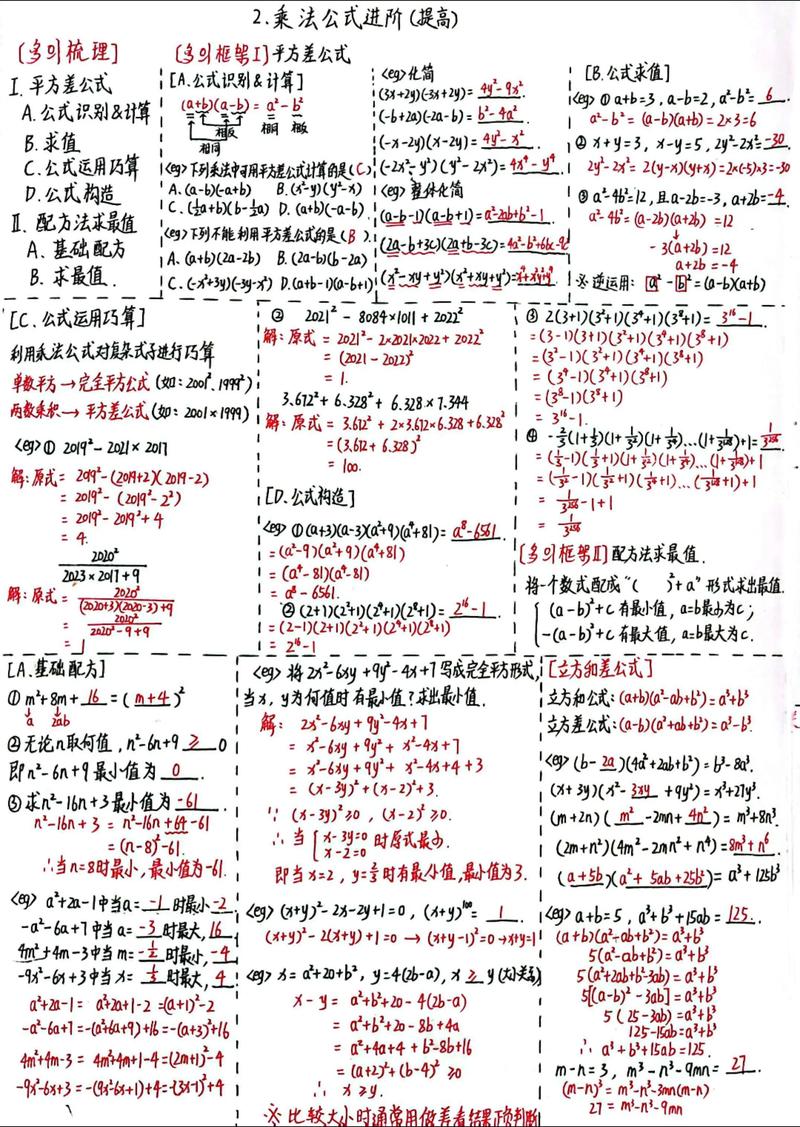 2.乘法公式进阶(提高)
[多的梳理]
I. 平方差公式
A.公式识别&计算
B.求值
C.公式运用巧算
D.公式构造
II. 配方法求最值
A. 基础配方
B. 求最值.
[多的框架I]平方差公式
[A.公式识别&计算]
(a+b)(a-b) = a²-b²
相反 相同 相反
相同
<eg>下列乘法中可用平方差公式计算的是(C)
A.(a-b)(-a+b) B.(x²-y)(y²-x)
C.(½a+b)(b-½a) D.(a+b)(-a-b)
<eg>下列不能利用平方差公式的是(B).
A.(a+b)(2a-2b) B.(2a-b)(b-2a)
C.(-x²+3y)(-3y-x²) D.(a+b-1)(a-b+1)
<eg>化简
(3x+2y)(-3x+2y)= 4y²-9x².
(-b+2a)(-2a-b)= b²-4a².
(-x-2y)(x-2y)= 4y²-x².
(-2x²-y²)(y²-2x²)= 4x⁴-y⁴
<eg>整体化简
(a-b-1)(a-b+1)=a²-2ab+b²-1.
(2a-b+3c)(2a+b-3c)=4a²-b²+6bc-9c²
(x²-xy+y²)(x²+xy+y²)=x⁴+x²y²+y⁴
[B.公式求值]
<eg>① a+b=3, a-b=2, a²-b²= 6.
a²-b² = (a-b)(a+b) = 2×3=6
② x+y=3, x-y=5, 2y²-2x²=-30
2y²-2x² = 2(y-x)(y+x)=2×(-5)×3=-30
③ a²-4b²=12, 且a-2b=-3, a+2b=-4.
a²-4b² = (a-2b)(a+2b) =12
-3(a+2b)=12
a+2b=-4
※逆运用: a²-b²=(a-b)(a+b)
[C.公式运用巧算]
利用乘法公式对复杂式子进行巧算
单数平方→完全平方公式(如:2001²、1999²)
两数乘积→平方差公式(如:2001×1999)
<eg>① 2019²-2021×2017
解:原式= 2019²-(2019+2)(2019-2)
= 2019²-(2019²-2²)
= 2019²-2019²+4
= 4.
2020²
2023×2017+9
解:原式= 2020²
(2020+3)(2020-3)+9
= 2020²
2020²-9+9
= 1
② 2021²-8084×1011+2022²
解:原式= 2021²-2×2021×2022+2022²
= (2021-2022)²
= 1.
3.672²+6.328²+6.328×7.344
解:原式= 3.672²+2×3.672×6.328+6.328²
=(3.672+6.328)²
= 100.
[D.公式构造]
<eg>①(a+3)(a-3)(a²+9)(a⁴+81)= a⁸-6561.
=(a²-9)(a²+9)(a⁴+81)
=(a⁴-81)(a⁴-81)
= a⁸-6561.
②(2+1)(2²+1)(2⁴+1)(2⁸+1)= 2¹⁶-1
=(2-1)(2+1)(2²+1)(2⁴+1)(2⁸+1)
= 2¹⁶-1
③ 2(3+1)(3²+1)(3⁴+1)(3⁸+1)= 3¹⁶-1.
=(3-1)(3+1)(3²+1)(3⁴+1)(3⁸+1)
=(3²-1)(3²+1)(3⁴+1)(3⁸+1)
=(3⁴-1)(3⁴+1)(3⁸+1)
=(3⁸-1)(3⁸+1)
= 3¹⁶-1.
[多的框架II]配方法求最值.
将一个数式配成“( )²+a”形式求出最值.
(a-b)²+c 有最小值, a=b最小为c;
-(a-b)²+c 有最大值, a=b最大为c.
[A.基础配方]
① m²+8m+16=(m+4)²
a 2ab
②无论n取何值, n²-6n+9 ≥ 0
即n²-6n+9最小值为 0.
③求n²-16n+3最小值为-61.
n²-16n+3 = n²-16n+64-61
=(n-8)²-61.
∴当n=8时最小,最小值为-61.
<eg> a²+2a-1中当a=-1时最小-2
-a²-6a+7中当a=-3时最大,16
4m²+4m-3中当m=-½时最小,-4
-9x²-6x+3中当x=⅓时最大,4
a²+2a-1= a²+2a+1-2=(a+1)²-2
-a²-6a+7=-(a²+6a+9)+16=-(a+3)²+16
4m²+4m-3= 4m²+4m+1-4=(2m+1)²-4
-9x²-6x+3=-(9x²+6x+1)+4=-(3x-1)²+4
<eg>将2x²-6xy+9y²-4x+7写成完全平方形式,
当x,y为何值时有最小值?求出最小值.
解: 2x²-6xy+9y²-4x+7
= x²-6xy+9y²+x²-4x+7
= x²-6xy+9y²+x²-4x+4+3
=(x-3y)²+(x-2)²+3.
∵(x-3y)²≥0, (x-2)²≥0.
∴当{x-3y=0 x-2=0 时原式最小.
即当x=2, y=⅔时有最小值,最小值为3.
<eg>(x+y)²-2x-2y+1=0, (x+y)¹⁰⁰= 1.
(x+y)²-2(x+y)+1=0→(x+y-1)²=0→x+y=1
<eg>x=a²+20+b², y=4(2b-a), x ≥ y(大小关系)
x-y= a²+b²+20-4(2b-a)
= a²+b²+20-8b+4a
= a²+4a+4+b²-8b+16
=(a+2)²+(b-4)²≥0
∴ x≥y.
※比较大小时通常用做差看结果正负判断
[立方和差公式]
立方和公式:(a+b)(a²-ab+b²)=a³+b³
立方差公式:(a-b)(a²+ab+b²)=a³-b³.
<eg>(b-2a)(4a²+2ab+b²)=b³-8a³.
(x+3y)(x²-3xy+9y²)=x³+27y³.
(m+2n)(m²-2mn+4n²)=m³+8n³.
(2m+n²)(4m²-2mn²+n⁴)=8m³+n⁶.
(a+5b)(a²+5ab+25b²)=a³+125b³
<eg>a+b=5, a³+b³+15ab=125.
(a+b)(a²-ab+b²)=a³+b³
5(a²-ab+b²)=a³+b³
5(a²+2ab+b²-3ab)=a³+b³
5[(a-b)²-3ab]=a³+b³
5(25-3ab)=a³+b³
125-15ab=a³+b³
∴ a³+b³+15ab=125.
m-n=3, m³-n³-9mn= 27.
(m-n)³=m³-n³-3mn(m-n)
27=m³-n³-9mn